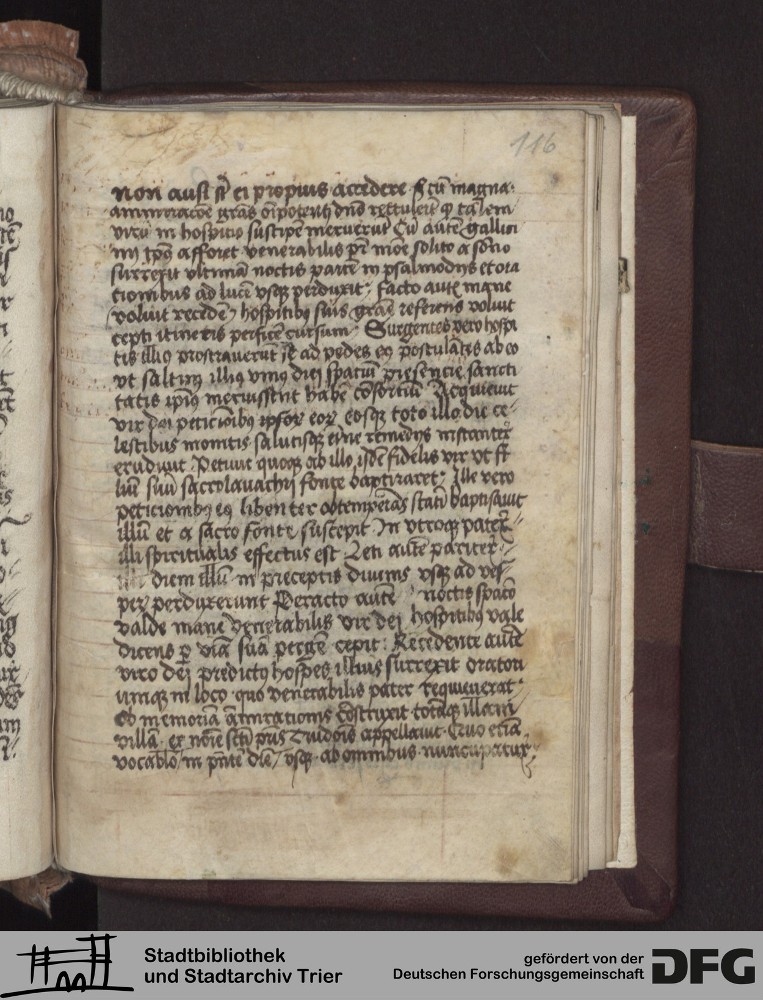 116
non ausi sūt ei propius accedere s; cū magna
ammiracōe gr̄as oīpotenti dn̄o rettulerūt q̄ talem
virū in hospitio suscipe meruerūt Cū autē gallici
nij tp̄us afforet venerabilis pr̄ more solito a sono
surrexit vltimā noctis partē in psalmodijs et ora
tionibus ad lucē vsq; perduxit facto autē mane
voluit recedere hospitibus suis gr̄as referens voluit
cepti itineris perficere cursum Surgentes vero hospi
tis illius prostrauerunt se ad pedes eius postulātes ab eo
vt saltim illius vnius diei spatiū presencie sancti
tatis ipius meruissent habē cōsortiū Acquieuit
vir dei peticionibus ipsorū eosq; toto illo die ce
lestibus monitis salutisq; eterne remedijs instanter
erudiuit Petiuit quoq; ab illo isdē fidelis vir vt fi
liū suū sacro lauachri fonte baptizaret Ille vero
peticionibus eius libenter obtemperās statī baptisauit
illū et a sacro fonte suscepit In vtroq; pater
illi spiritualis effectus est Leti autē pariter
diem illū in preceptis diuinis vsq; ad ves
perū perduxerunt Peracto autē noctis spacio
valde mane venerabilis vir dei hospitibus vale
dicens per viā suā pergē cepit Recedente autē
viro dei predictus hospes illius surrexit oratori
umq; in loco quo venerabilis pater requieuerat
Ob memoriā āmirationis cōstruxit totāq; illam
villā ex noīe scī
appellauit Quo etiā
vocablo in pn̄tē diē vsq; ab omnibus nuncupatur
Stadtbibliothek
und Stadtarchiv Trier
gefördert von der
Deutschen Forschungsgemeinschaft
DFG